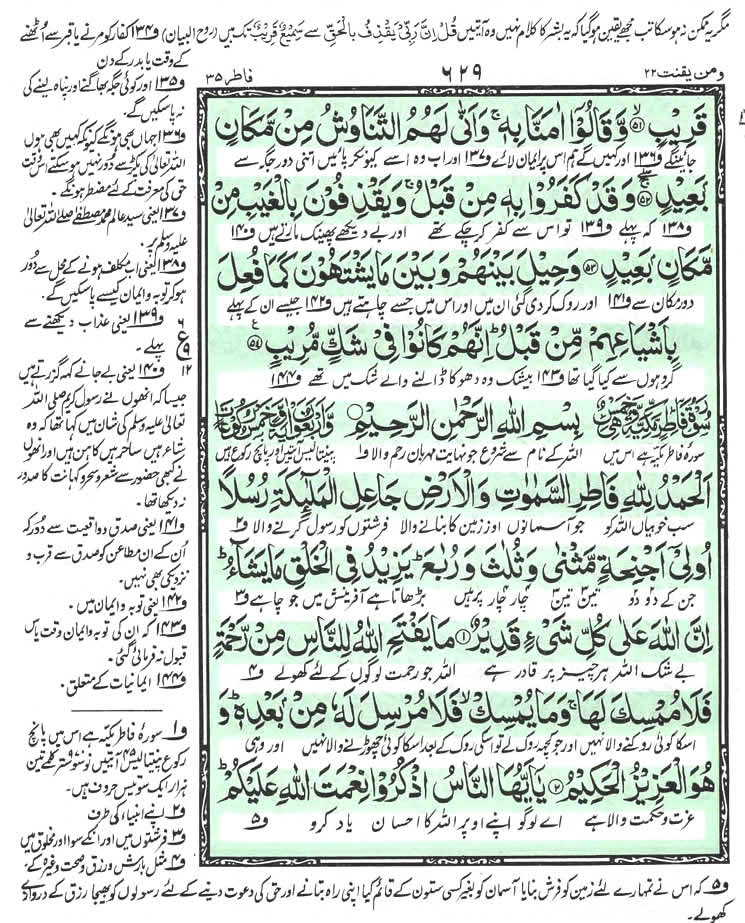 مگر یہ ممکن نہ ہوسکا تب مجھے یقین ہوگیا کہ یہ بشر کا کلام نہیں وہ آیتیں قُلْ اِنَّ رَبِّیْ یَقْذِفُ بِالْحَقِّ سے سَمِیْعٌ قَرِیْبٌ تک ہیں (روح البیان) و۱۳۴ کفار کو مرنے یا قبر سے اُٹھنے
کے وقت یا بدر کے دن
ومن یقنت ۲۲
۶۲۹
فاطر ۳۵
قَرِیْبٍ ﴿۵۱﴾ وَّ قَالُوْۤا اٰمَنَّا بِهٖ ۚ وَاَنّٰی لَهُمُ التَّنَاوُشُ مِنْ مَّكَانٍۭ
جائینگے و۱۳۶ اور کہیں گے ہم اس پر ایمان لائے و۱۳۷ اور اب وہ اسے کیونکر پائیں اتنی دور جگہ سے
بَعِیْدٍ ﴿۵۲﴾ وَّ قَدْ كَفَرُوْا بِهٖ مِنْ قَبْلُ ۚ وَیَقْذِفُوْنَ بِالْغَیْبِ مِنْ
و۱۳۸ کہ پہلے و۱۳۹ تو اس سے کفر کرچکے تھے اور بے دیکھے پھینک مارتے ہیں و۱۴۰
مَّكَانٍۭ بَعِیْدٍ ﴿۵۳﴾ وَحِیْلَ بَیْنَهُمْ وَبَیْنَ مَا یَشْتَهُوْنَ كَمَا فُعِلَ
دور مکان سے و۱۴۱ اور روک کردی گئی ان میں اور اس میں جسے چاہتے ہیں و۱۴۲ جیسے ان کے پہلے
بِاَشْیَاعِهِمْ مِّنْ قَبْلُ ؕ اِنَّهُمْ كَانُوْا فِیْ شَكٍّ مُّرِیْبٍ ﴿۵۴﴾
گروہوں سے کیا گیا تھا و۱۴۳ بیشک وہ دھوکا ڈالنے والے شک میں تھے و۱۴۴
سُوْرَةُ فَاطِرٍ مَكِّيَّةٌ وَهِيَ خَمْسٌ بِسْمِ اللّٰهِ الرَّحْمٰنِ الرَّحِیْمِ وَاَرْبَعُوْنَ اٰيَةً وَخَمْسُ رُكُوْعَاتٍ
سورۂ فاطر مکیہ ہے اس میں اللہ کے نام سے شروع جو نہایت مہربان رحم والا و۱ پینتالیس آیتیں اور پانچ رکوع ہیں
اَلْحَمْدُ لِلّٰهِ فَاطِرِ السَّمٰوٰتِ وَالْاَرْضِ جَاعِلِ الْمَلٰٓىِٕكَةِ رُسُلًا
سب خوبیاں اللہ کو جو آسمانوں اور زمین کا بنانے والا فرشتوں کو رسول کرنے والا و۲
اُولِیْۤ اَجْنِحَةٍ مَّثْنٰی وَثُلٰثَ وَرُبٰعَ ؕ یَزِیْدُ فِی الْخَلْقِ مَا یَشَآءُ ؕ
جن کے دو دو تین تین چار چار پر ہیں بڑھاتا ہے آفرینش میں جو چاہے و۳
اِنَّ اللّٰهَ عَلٰی كُلِّ شَیْءٍ قَدِیْرٌ ﴿۱﴾ مَا یَفْتَحِ اللّٰهُ لِلنَّاسِ مِنْ رَّحْمَةٍ
بے شک اللہ ہر چیز پر قادر ہے اللہ جو رحمت لوگوں کے لئے کھولے و۴
فَلَا مُمْسِكَ لَهَا ۚ وَمَا یُمْسِكْ ۙ فَلَا مُرْسِلَ لَهٗ مِنْۢ بَعْدِهٖ ؕ وَ
اسکا کوئی روکنے والا نہیں اور جو کچھ روک لے تو اسکی روک کے بعد اسکا کوئی چھوڑنے والا نہیں اور وہی
هُوَ الْعَزِیْزُ الْحَكِیْمُ ﴿۲﴾ یٰۤاَیُّهَا النَّاسُ اذْكُرُوْا نِعْمَتَ اللّٰهِ عَلَیْكُمْ ؕ
عزت و حکمت والا ہے اے لوگو اپنے اوپر اللہ کا احسان یاد کرو و۵
و۱۳۵ اور کوئی جگہ بھاگنے اور پناہ لینے کی
نہ پاسکیں گے۔
و۱۳۶ جہاں بھی ہونگے کیونکہ کہیں بھی ہوں
اللہ تعالیٰ کی پکڑ سے دُور نہیں ہوسکتے اس وقت
حق کی معرفت کے لئے مضطر ہونگے۔
و۱۳۷ یعنی سید عالم محمد مصطفٰے صلی اللہ تعالیٰ
علیہ وسلم پر۔
و۱۳۸ یعنی اب مکلف ہونے کے محل سے دُور
ہوکر توبہ و ایمان کیسے پاسکیں گے۔
و۱۳۹ یعنی عذاب دیکھنے سے
پہلے۔
و۱۴۰ یعنی بے جانے کہہ گزرتے ہیں
جیسا کہ انھوں نے رسول کریم صلی اللہ
تعالیٰ علیہ وسلم کی شان میں کہا تھا کہ وہ
شاعر ہیں ساحر ہیں کاہن ہیں اور انھوں
نے کبھی حضور سے شعر و سحر و کہانت کا صدور
نہ دیکھا تھا۔
و۱۴۱ یعنی صدق و واقعیت سے دُور کہ
اُن کے ان مطاعن کو صدق سے قرب و
نزدیکی بھی نہیں۔
و۱۴۲ یعنی توبہ و ایمان میں۔
و۱۴۳ کہ ان کی توبہ و ایمان وقت یاس
قبول نہ فرمائی گئی۔
و۱۴۴ ایمانیات کے متعلق۔
ع
۶
۹
۱۲
و۱ سورۂ فاطر مکیہ ہے اس میں پانچ
رکوع پینتالیس ۴۵ آیتیں نو سو ستر کلمے تین
ہزار ایک سو تیس حروف ہیں۔
و۲ اپنے انبیاء کی طرف
و۳ فرشتوں میں اور انکے سوا اور مخلوق میں
و۴ مثل بارش و رزق و صحت وغیرہ کے۔
و۵ کہ اس نے تمہارے لئے زمین کو فرش بنایا آسمان کو بغیر کسی ستون کے قائم کیا اپنی راہ بتانے اور حق کی دعوت دینے کے لئے رسولوں کو بھیجا رزق کے دروازے
کھولے۔